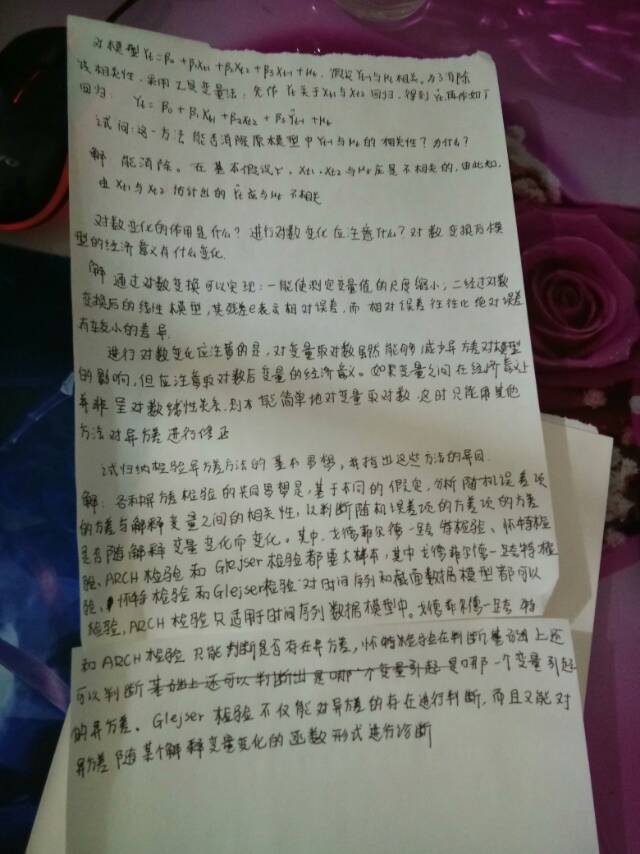 对模型 Yt=β0+β1Xt1+β2Xt2+β3Yt-1+μt, 假设Yt-1与μt相关。为了消除
该相关性,采用工具变量法:先作Yt关于Xt1与Xt2回归,得到Ŷt,再作如下
回归: Yt=β0+β1Xt1+β2Xt2+β3Ŷt-1+μt
试问:这一方法能否消除原模型中Yt-1与μt的相关性?为什么?
解 能消除。在基本假设下,Xt1,Xt2与μt应是不相关的,由此知,
由Xt1与Xt2估计出的Ŷt应与μt不相关
对数变化的作用是什么?进行对数变化应注意什么?对数变换后模
型的经济意义有什么变化.
解 通过对数变换可以实现:一能使测定变量值的尺度缩小;二经过对数
变换后的线性模型,其残差e表示相对误差,而相对误差往往比绝对误差
有较小的差异.
进行对数变化应注意的是,对变量取对数虽然能够减少异方差对模型
的影响,但应注意取对数后变量的经济意义。如果变量之间在经济意义上
并非呈对数线性关系,则不能简单地对变量取对数,这时只能用其他
方法对异方差进行修正
试归纳检验异方差方法的基本思想,并指出这些方法的异同.
解:各种异方差检验的共同思想是,基于不同的假定,分析随机误差项
的方差与解释变量之间的相关性,以判断随机误差项的方差项的方差
是否随解释变量变化而变化。其中,戈德菲尔德—跨特检验、怀特检
验、ARCH检验和Glejser检验都要大样本,其中戈德菲尔德—跨特检
验,怀特检验和Glejser检验对时间序列和截面数据模型都可以
检验,ARCH检验只适用于时间序列数据模型中。戈德菲尔德—跨特
和ARCH检验只能判断是否存在异方差,怀特检验在判断基础上还
可以判断基础上还可以判断出是哪一个变量引起是哪一个变量引起
的异方差。Glejser检验不仅能对异方差的存在进行判断,而且又能对
异方差随某个解释变量变化的函数形式进行诊断